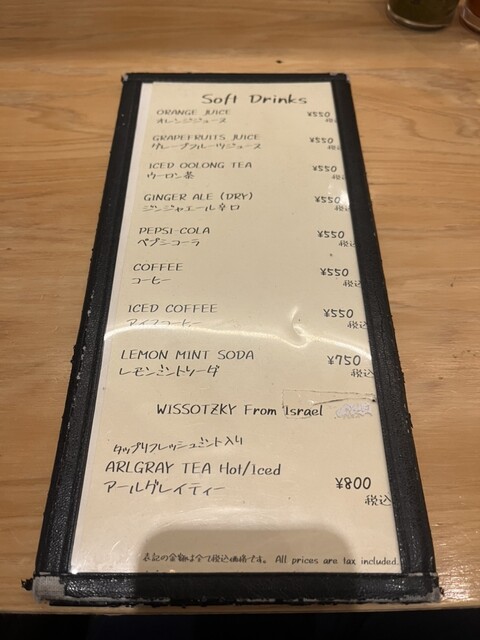 Soft Drinks
ORANGE JUICE ¥550
オレンジジュース 税込
GRAPEFRUITS JUICE ¥550
グレープフルーツジュース 税込
ICED OOLONG TEA ¥550
ウーロン茶 税込
GINGER ALE (DRY) ¥550
ジンジャエール辛口 税込
PEPSI-COLA ¥550
ペプシコーラ 税込
COFFEE ¥550
コーヒー 税込
ICED COFFEE ¥550
アイスコーヒー 税込
LEMON MINT SODA ¥750
レモンミントソーダ 税込
WISSOTZKY From Israel
タップリフレッシュミント入り
ARLGRAY TEA Hot/Iced ¥800
アールグレイティー 税込
表記の金額は全て税込価格です。 All prices are tax included.